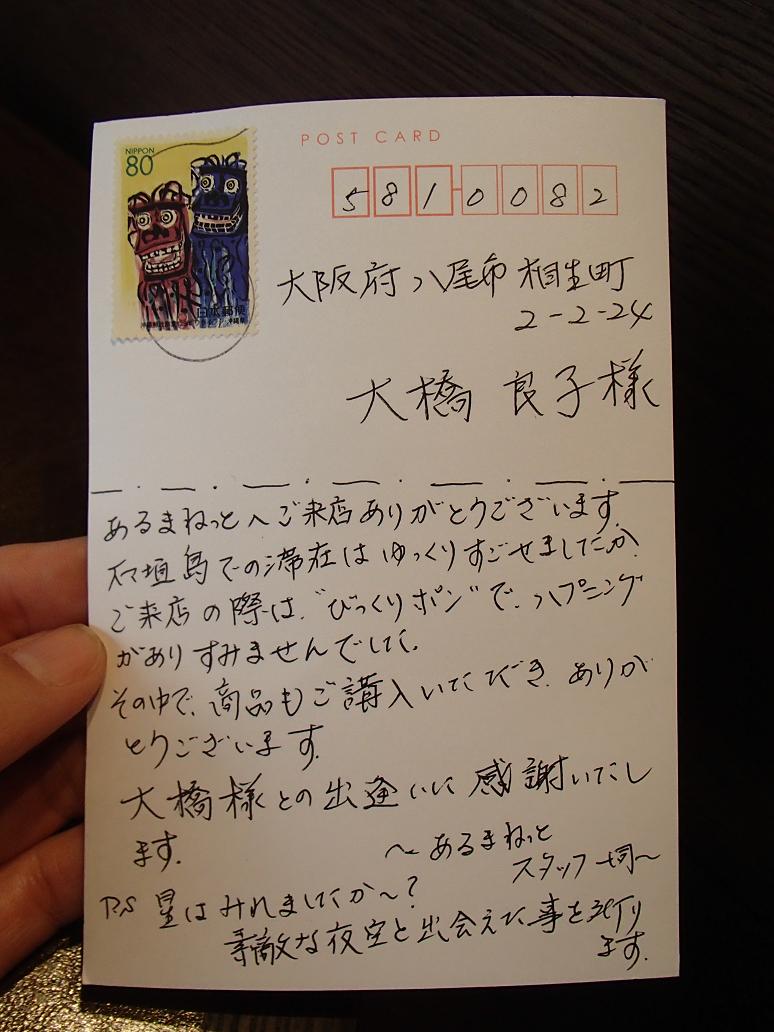 NIPPON
80
日本郵便
沖縄県
POST CARD
581-0082
大阪府八尾市相生町
2-2-24
大橋 良子様
あるまねっとへご来店ありがとうございます。
石垣島での滞在はゆっくりすごせましたか?
ご来店の際は、"びっくりポン"で、ハプニング
がありすみませんでした。
その中で、商品もご講入いただき、ありが
とうございます。
大橋様との出逢いに感謝いたし
ます。
〜あるまねっと
スタッフ一同〜
P.S 星はみれましたか〜?
素敵な夜空と出会えた事を祈り
ます。